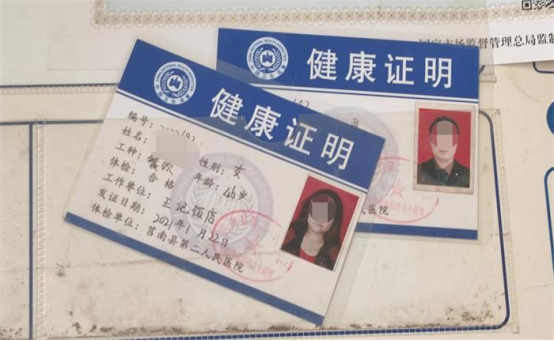 国家市场监督管理总局监制
健康证明
健康证明
编号:
姓名:
性别: 女
工种:
年龄: 44岁
体检: 合格
工作单位: 王记饭店
发证日期: 2021年1月22日
体检单位: 莒南县第二人民医院
民医院